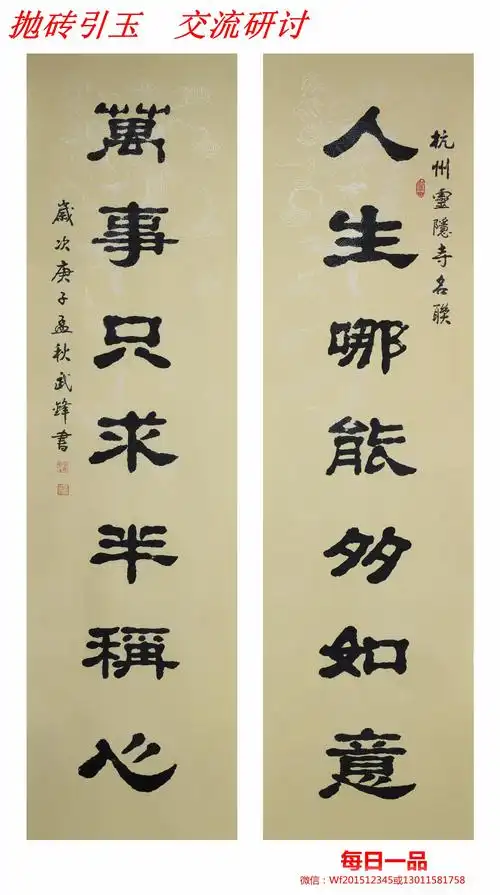 抛砖引玉 交流研讨
杭州靈隱寺名聯
人生哪能多如意
萬事只求半稱心
歲次庚子孟秋武鋒書
每日一品
微信：Wf201512345或13011581758